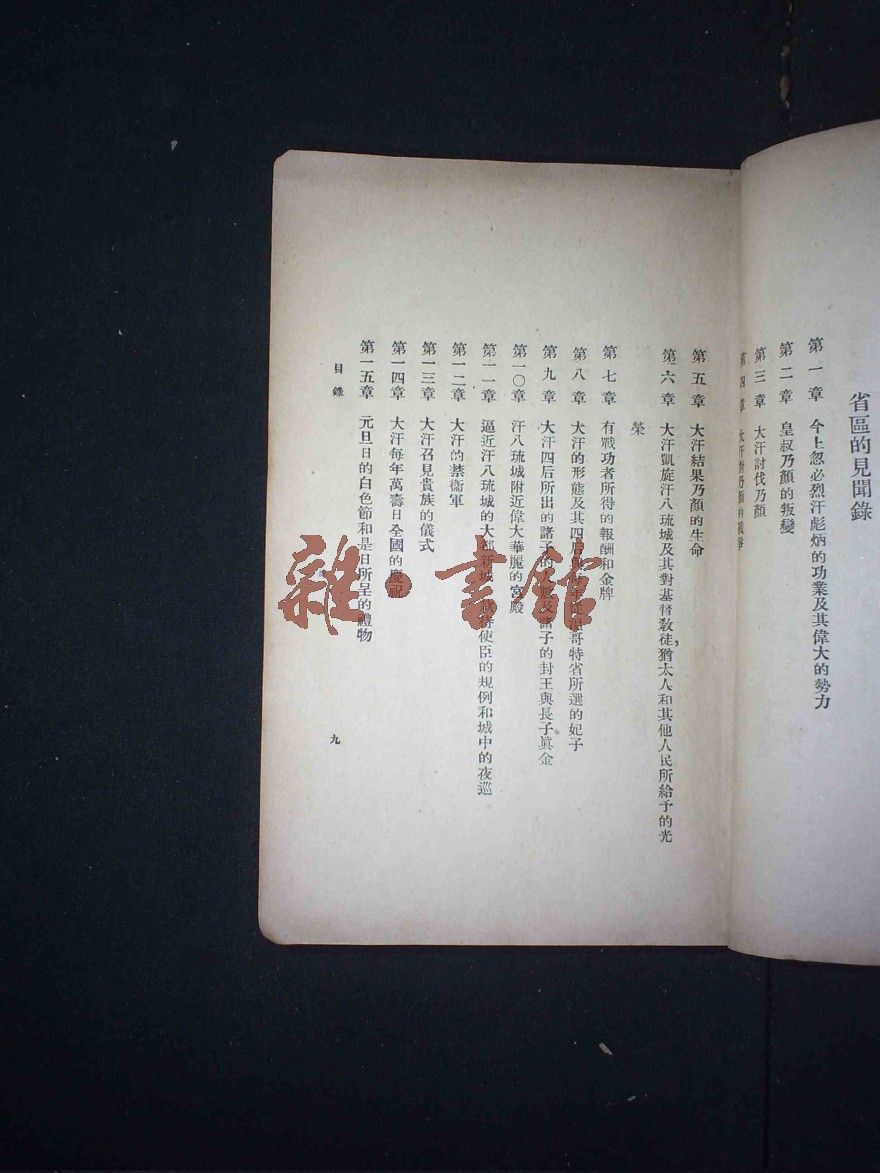 省區的見聞錄
第一章 今上忽必烈汗彪炳的功業及其偉大的勢力
第二章 皇叔乃顏的叛變
第三章 大汗討伐乃顏
第四章 大汗對乃顏的戰爭
第五章 大汗結果乃顏的生命
第六章 大汗凱旋汗八琉城及其對基督敎徒,猶太人和其他人民所給予的光
榮
第七章 有戰功者所得的報酬和金牌
第八章 大汗的形態及其四后 哥特省所選的妃子
第九章 大汗四后所出的諸子的 及諸子的封王與長子眞金
第一〇章 汗八琉城附近偉大華麗的宮殿
第一一章 逼近汗八琉城的大都新城 款待使臣的規例和城中的夜巡
第一二章 大汗的禁衞軍
第一三章 大汗召見貴族的儀式
第一四章 大汗每年萬壽日全國的慶祝
第一五章 元旦日的白色節和是日所呈的禮物
目錄
九
雜·書館